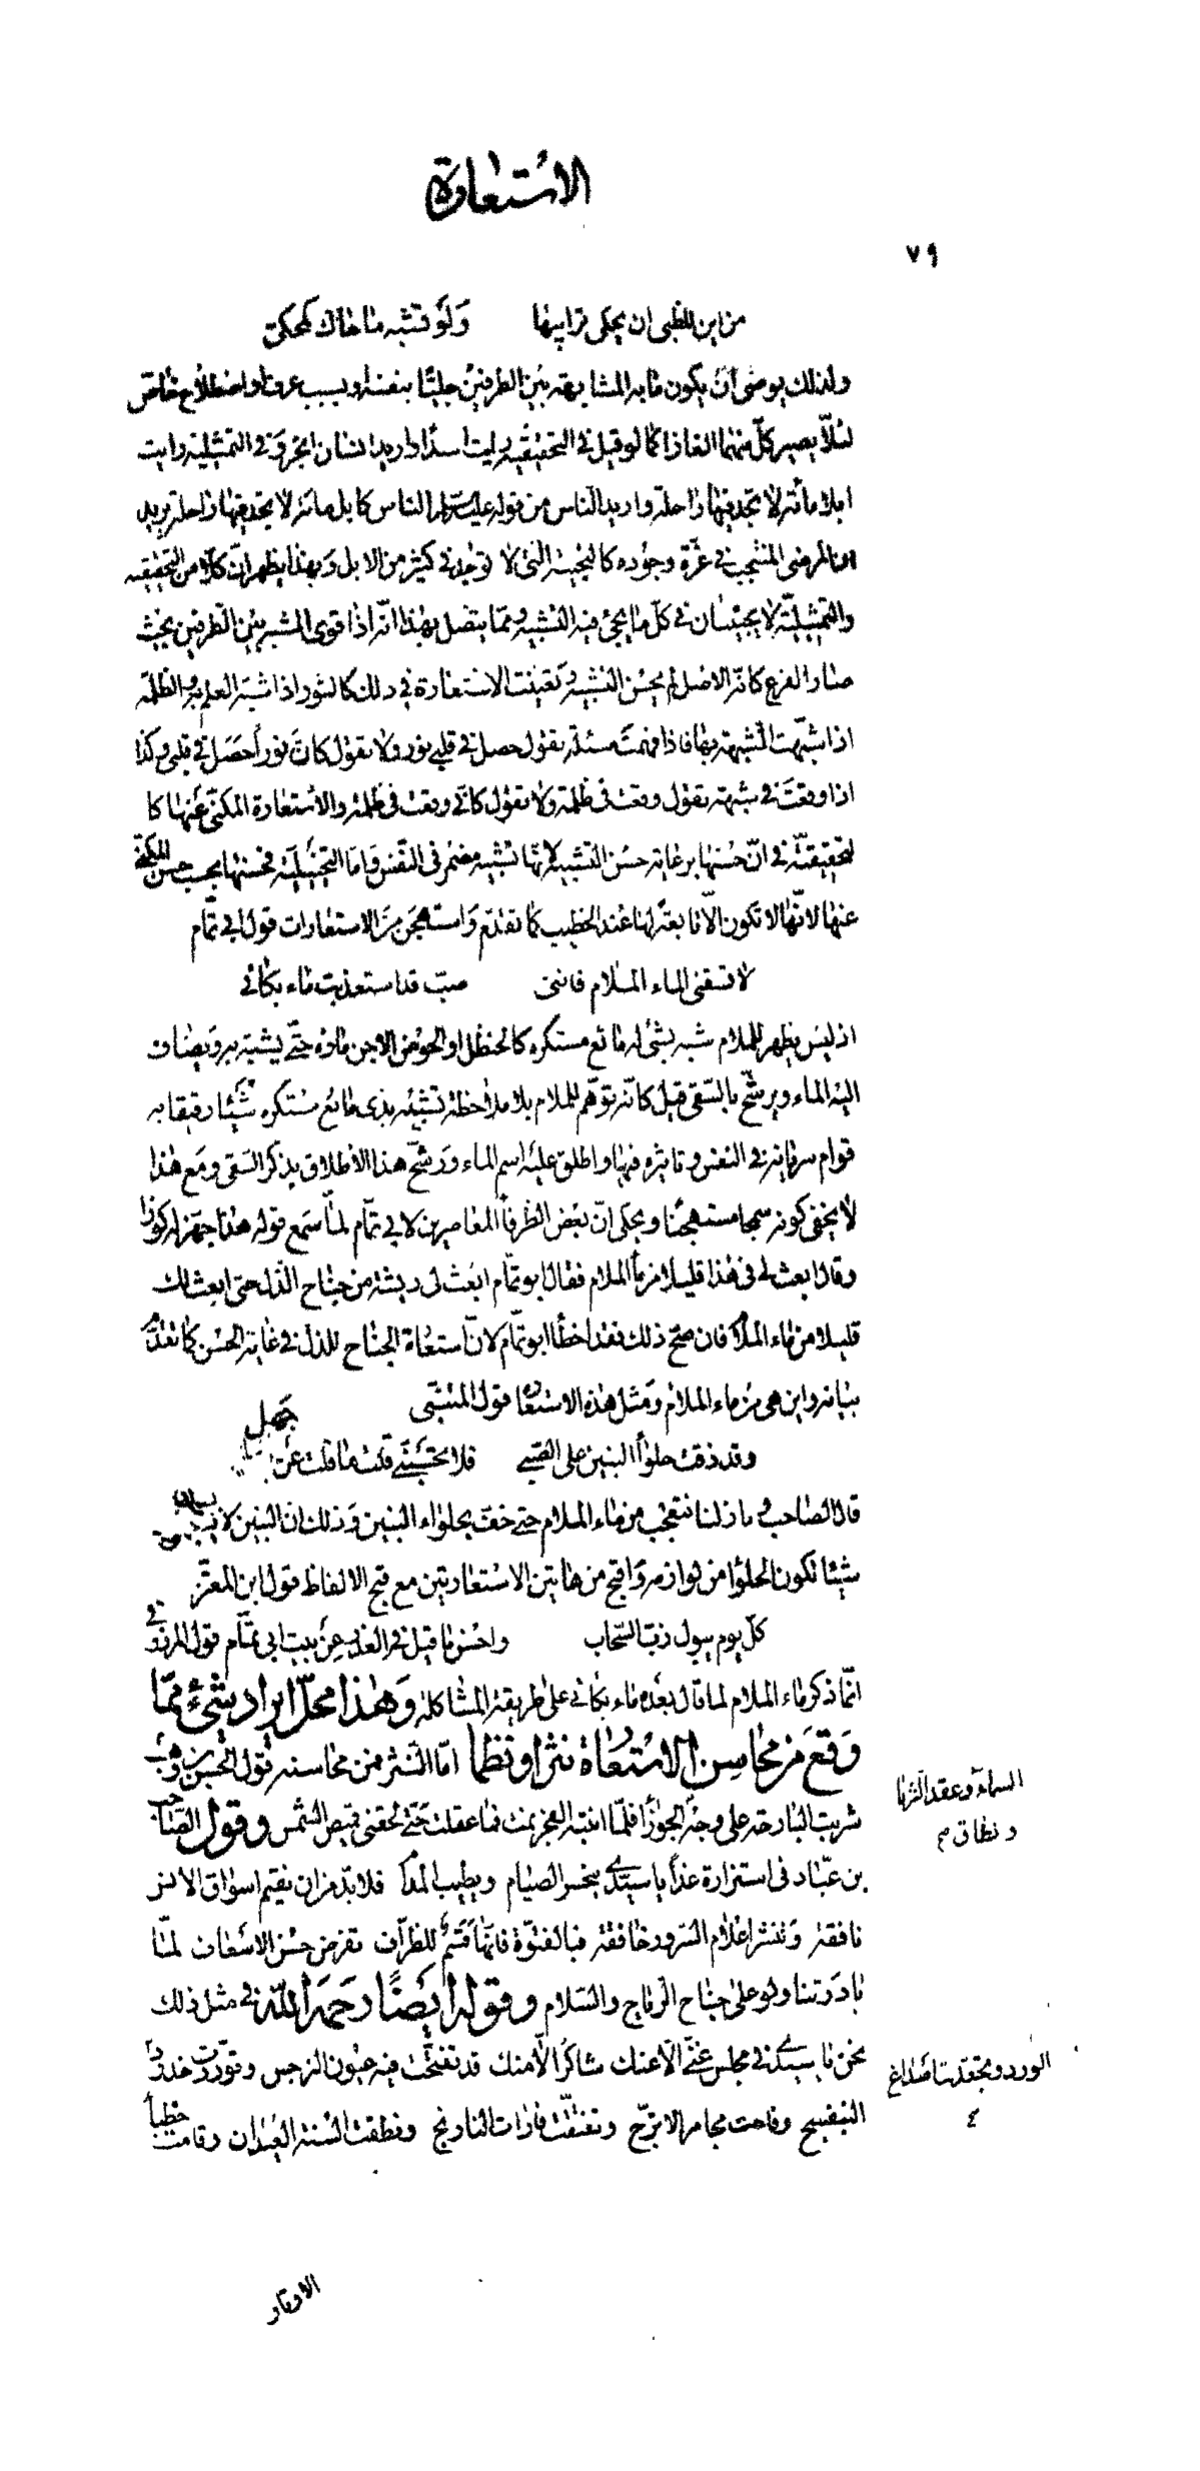 الاستعارة
٧٩
من اين للظبى ان يحكى ترايبها ولو تشبه ما هاتاك لمحكى
ولذلك يوصى أن يكون ما به المشابهة بين الطرفين جليّا بنفسه او بسبب عرف او اصطلاح خاص
لئلّا يصير كلّ منهما الغازا كما لو قيل فى التحقيقية رايت اسدا واريد انسان ابخر وفى التمثيلية رايت
ابلا مائة لا تجد فيها راحلة واريد الناس من قوله عليه السلام الناس كابل مائة لا تجد فيها راحلة يريد
ان المرضى المنتجب فى عزّة وجوده كالنجيبة التى لا توجد فى كثير من الابل وبهذا يظهر انّ كلا من التحقيقيه
والتمثيليّة لا يجيئان فى كلّ ما يجئ فيه التشبيه وممّا يتصل بهذا انّه اذا قوى الشبه بين الطرفين بحيث
صار الفرع كانّه الاصل لم يحسن التشبيه وتعينت الاستعارة فى ذلك كالنور اذا شبّه العلم به والظلمة
اذا شبّهت الشبهة بها فاذا فهمت مسئلة تقول حصل فى قلبى نور ولا تقول كانّ نورا حصل فى قلبى وكذا
اذا وقعت فى شبهة تقول وقعت فى ظلمة ولا تقول كانّى وقعت فى ظلمة والاستعارة المكنّى عنها كا
لتحقيقيّة فى انّ حسنها برعاية حسن التشبيه لانّها تشبيه مضمر فى النّفس وامّا التخييليّة فحسنها بحسب حسن المكنّى
عنها لانّها لا تكون الّا تابعة لها عند الخطيب كما تقدّم واستهجن من الاستعارات قول ابى تمّام
لا تسقنى الماء الملام فاننى صبّ قد استعذبت ماء بكائى
اذ ليس يظهر للملام شبه بشئ له مائع مستكره كالحنظل او الحوض الاجن ماؤه حتّى يشبّه به ويضاف
اليه الماء ويرشّح بالسّقى قيل كانّه توهّم للملام بلا ملاحظة تشبيه بذى مائع مستكره شيئا رقيقا به
قوام سرفايته فى النفس وتاثيره فيها واطلق عليه اسم الماء ورشّح هذا الاطلاق بذكر السّقى ومع هذا
لا يخفى كونه سمجا مستهجنا ويحكى انّ بعض الظرفاء المعاصرين لابى تمّام لمّا سمع قوله هذا جهّز له كوزا
وقال ابعث لى فى هذا قليلا من ماء الملام فقال ابو تمّام ابعث لى ريشة من جناح الذّل حتى ابعث لك
قليلا من ماء الملام فان صحّ ذلك فقد اخطا ابو تمّام لانّ استعارة الجناح للذل فى غاية الحسن كما تقدّم
بيانه واين هى من ماء الملام ومثل هذه الاستعارة قول المتنبّى
وقد ذقت حلواء البنين على الصّبى فلا تحسبنّى قلت ما قلت عن جهل
قال الصاحب ما زلنا نتعجّب من ماء الملام حتى خفّ بحلواء البنين وذلك ان البنين لا
شيئا تكون الحلوا من لوازمه واقبح من هاتين الاستعارتين مع قبح الالفاظ قول ابن المعتزّ
كلّ يوم يبول زبّ السّحاب واحسن ما قيل فى العذر عن بيت ابى تمّام قول المرزوقى
انّما ذكر ماء الملام لما قال بعده ماء بكائى على طريقة المشاكلة وهذا محلّ ايراد شئ ممّا
وقع من محاسن الاستعارة نثرا ونظما امّا النّثر فمن محاسنه قول الحسن بن وهب
شربت البارحة على وجه الجوزاء فلمّا انتبه الفجر نمت فما عقلت حتّى لحقنى قميص الشّمس وقول الصّاحب
السماء وعقد الثريا
ونطاق
بن عبّاد فى استزارة غدا يا سيّدى ينحسر الصّيام ويطيب المدام فلا بدّ من ان نقيم اسواق الانس
نافقة وننشر اعلام السّرور خافقة فبالفتوّة فانّها قسم للظرّاف نفرض حسن الاسعاف لمّا
بادرتنا ولو على جناح الرّياح والسّلام وقوله ايضا رحمه اللّه فى مثل ذلك
نحن يا سيّدى فى مجلس غنىّ الّا عنك شاكر الّا منك قد تفتّحت فيه عيون النرجس وتورّدت خدود
الورد وبجعد تناصداغ
البنفسج وفاحت مجامر الاترّج وتفتّقت فارات النارنج ونطقت السنة العيدان وقامت خطباء
الاوتار